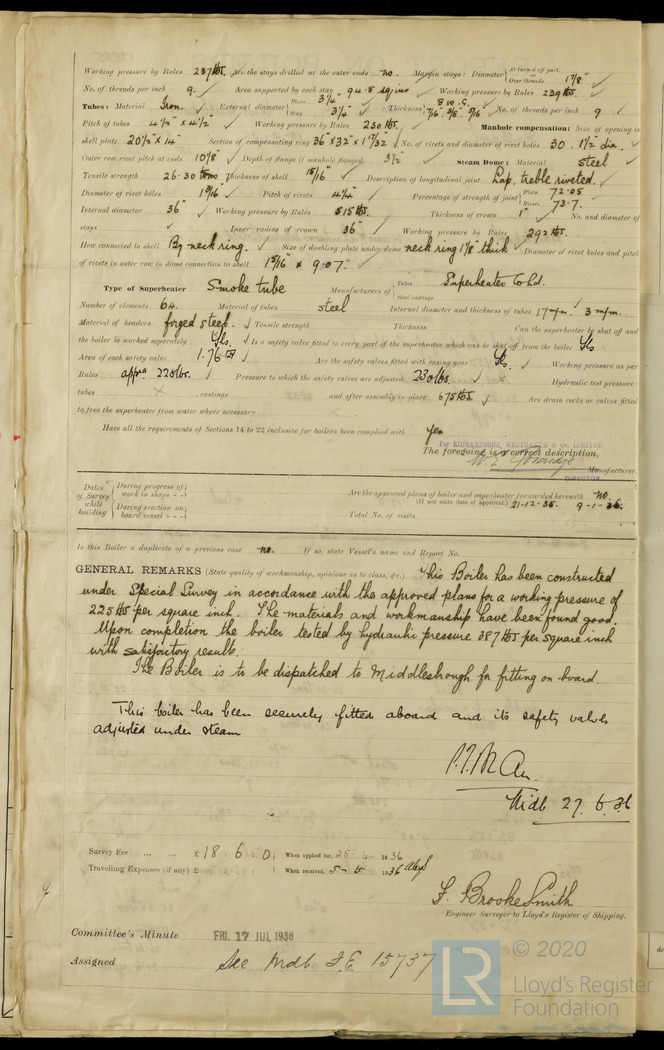 Working pressure by Rules 237 lbs. Are the stays drilled at the outer ends no. Margin stays: Diameter { At turned off part, or Over threads 1 7/8"
No. of threads per inch 9. Area supported by each stay 94.8 sq ins Working pressure by Rules 239 lbs.
Tubes: Material Iron. External diameter { Plain 3 1/4" Stay 3 1/4" Thickness { 8 w.g. 7/16" 3/8" 5/16" No. of threads per inch 9
Pitch of tubes 4 1/2" x 4 1/2" Working pressure by Rules 230 lbs. Manhole compensation: Size of opening in
shell plate 20 1/2" x 14" Section of compensating ring 36" x 32" x 1 17/32" No. of rivets and diameter of rivet holes 30. 1 1/2" dia.
Outer row rivet pitch at ends 10 1/8" Depth of flange if manhole flanged 3 1/2" Steam Dome: Material steel
Tensile strength 26-30 tons Thickness of shell 15/16" Description of longitudinal joint Lap, treble riveted.
Diameter of rivet holes 1 5/16" Pitch of rivets 4 3/4" Percentage of strength of joint { Plate 72.05 Rivets 73.7.
Internal diameter 36" Working pressure by Rules 515 lbs. Thickness of crown 1" No. and diameter of
stays Inner radius of crown 36" Working pressure by Rules 292 lbs.
How connected to shell By neck ring. Size of doubling plate under dome neck ring 1 1/8" thick Diameter of rivet holes and pitch
of rivets in outer row in dome connection to shell 1 5/16" x 9.07."
Type of Superheater Smoke tube Manufacturers of { Tubes Steel castings Superheater Co Ld.
Number of elements 64. Material of tubes steel Internal diameter and thickness of tubes 17 m/m. 3 m/m.
Material of headers forged steel. Tensile strength Thickness Can the superheater be shut off and
the boiler be worked separately Yes. Is a safety valve fitted to every part of the superheater which can be shut off from the boiler Yes
Area of each safety valve 1.76 Are the safety valves fitted with easing gear Yes. Working pressure as per
Rules 220 lbs. Pressure to which the safety valves are adjusted 230 lbs. Hydraulic test pressure:
tubes x castings and after assembly in place 675 lbs. Are drain cocks or valves fitted
to free the superheater from water where necessary
Have all the requirements of Sections 14 to 22 inclusive for boilers been complied with Yes
For RICHARDSONS, WESTGARTH & Co. LIMITED.
The foregoing is a correct description,
Manufacturer.
DIRECTOR
Dates of Survey while building { During progress of work in shops - - Are the approved plans of boiler and superheater forwarded herewith no.
(If not state date of approval.) 21-12-35. 9-1-36.
During erection on board vessel - - - Total No. of visits
Is this Boiler a duplicate of a previous case no. If so, state Vessel's name and Report No.
GENERAL REMARKS (State quality of workmanship, opinions as to class, &c.) This Boiler has been constructed
under Special Survey in accordance with the approved plans for a working pressure of
225 lbs per square inch. The materials and workmanship have been found good.
Upon completion the boiler tested by hydraulic pressure 387 lbs per square inch
with satisfactory results.
The Boiler is to be dispatched to Middlesbrough for fitting on board.
This boiler has been securely fitted aboard and its safety valves
adjusted under steam
Midb 27. 6. 36
Survey Fee ... ... £ 18 : 6 : 0 : When applied for, 25-4-1936
Travelling Expenses (if any) £ : : When received, 5-5-1936
F. Brooke Smith
Engineer Surveyor to Lloyd's Register of Shipping.
Committee's Minute FRI. 17 JUL 1936
Assigned See Mdb. F.E. 15737
© 2020
LR
Lloyd's Register
Foundation